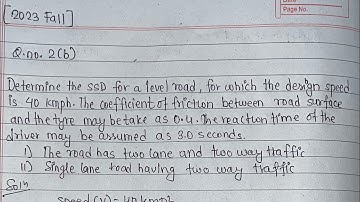 Page No.
[2023 Fall]
Q.no. 2(b)
Determine the SSD for a level road, for which the design speed
is 40 kmph. The coefficient of friction between road surface
and the tyre may be take as 0.4. The reaction time of the
driver may be assumed as 3.0 seconds.
i) The road has two lane and two way traffic
ii) Single lane road having two way traffic
Solⁿ
speed (v) = 40 kmph